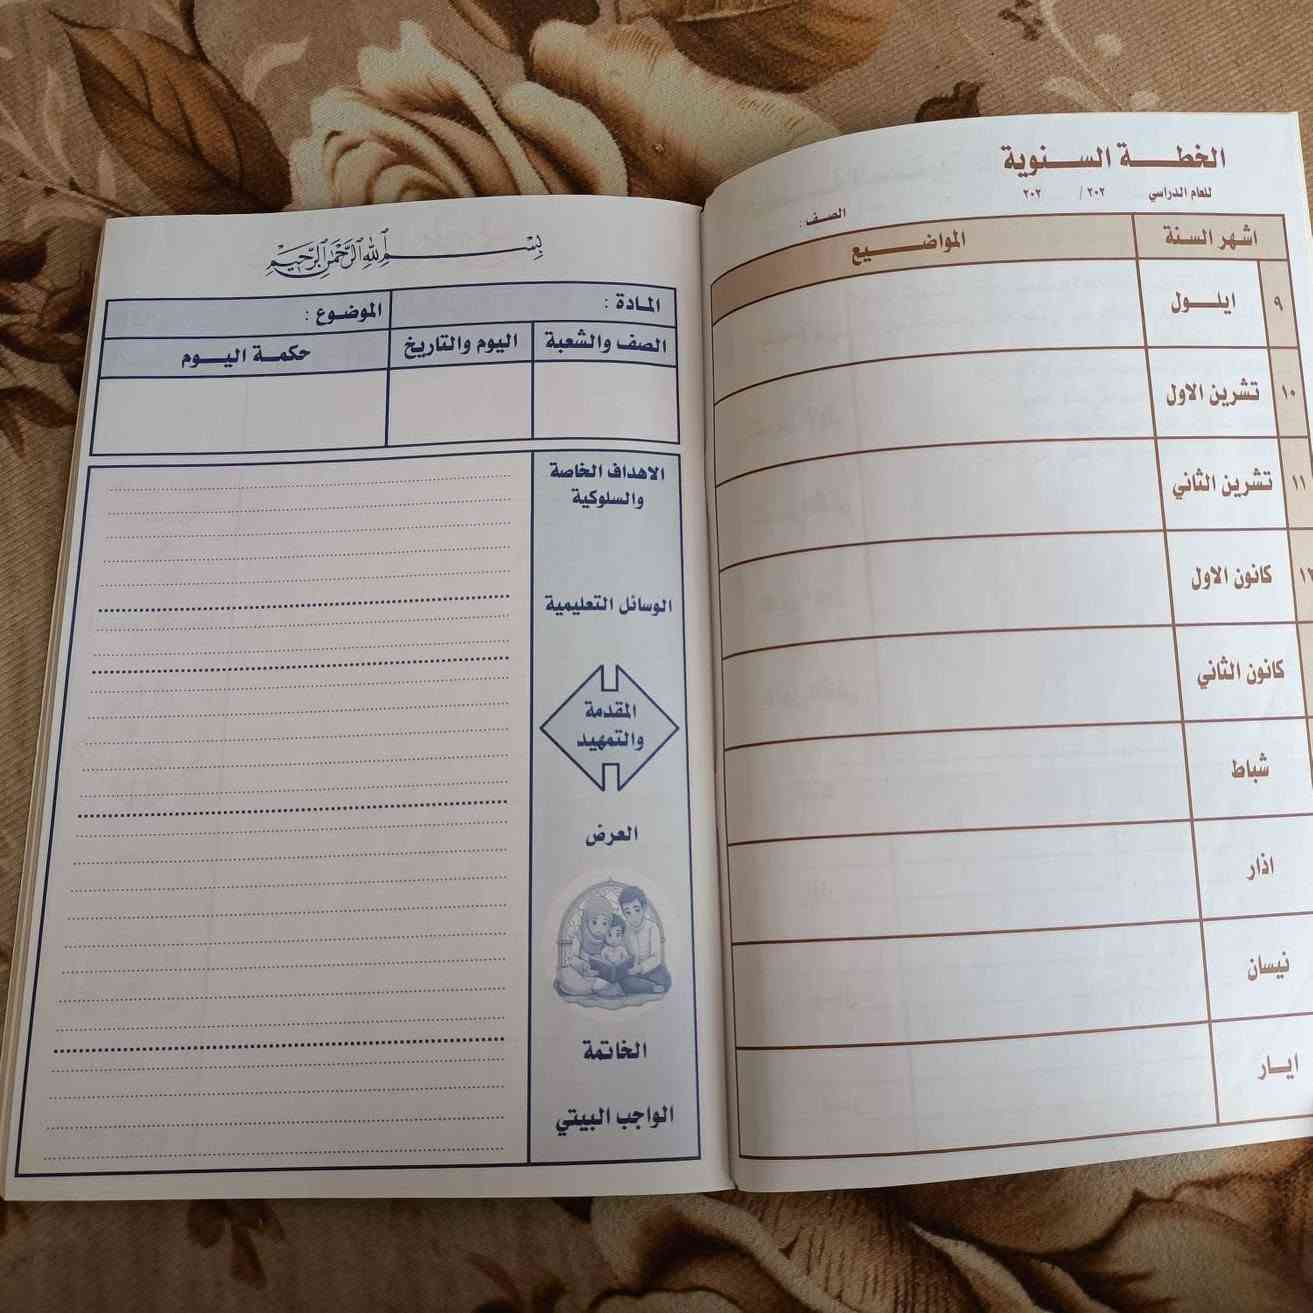 الخطة السنوية
للعام الدراسي ٢٠٢ / ٢٠٢
الصف :
اشهر السنة المواضيع
٩ ايلول
١٠ تشرين الاول
١١ تشرين الثاني
١٢ كانون الاول
كانون الثاني
شباط
اذار
نيسان
ايار
بسم الله الرحمن الرحيم
المادة : الموضوع :
الصف والشعبة اليوم والتاريخ حكمة اليوم
الاهداف الخاصة
والسلوكية
الوسائل التعليمية
المقدمة
والتمهيد
العرض
الخاتمة
الواجب البيتي